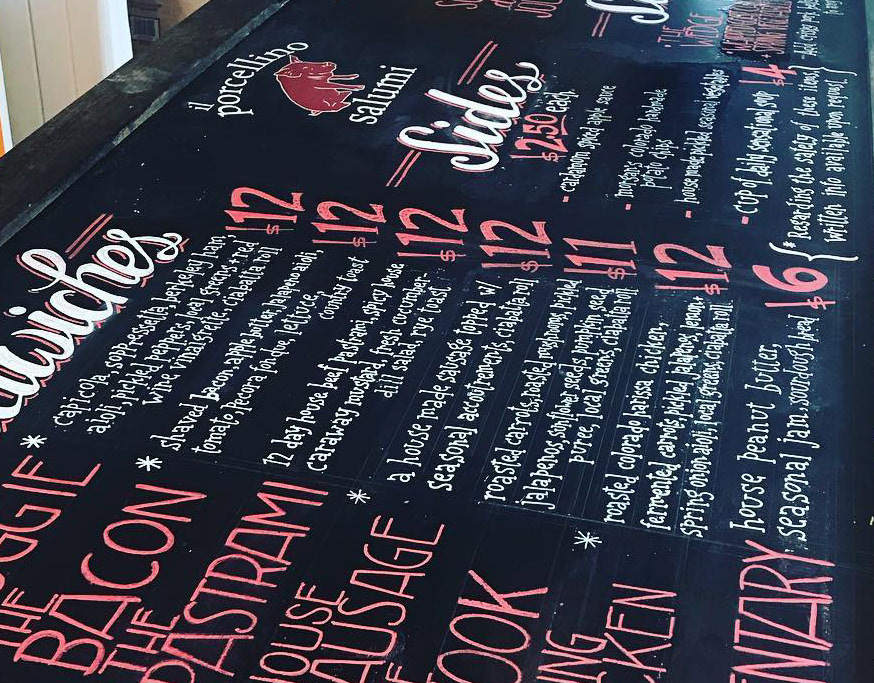 il
porcellino
salumi
Sides
$2.50 each
- cardamom spiced apple sauce
- morgans colorado handmade
potato chips
- house made pickled seasonal vegetables
- cup of daily sensational soup $4
{* Regarding the safety of these items,
written info available upon request}
wiches
GGIE
* capicola, soppressetta, berkeley ham, $12
aioli, pickled peppers, local greens + red
wine vinaigrette, ciabatta roll
THE
BACON
* shaved bacon, apple butter, jalapeno aioli, $12
tomato pecora fondue, lettuce,
country toast
THE
PASTRAMI
12 day house beef pastrami, spicy house $12
caraway mustard, fresh cucumber-
dill salad, rye toast
OUSE
AUSAGE
* a house made sausage topped w/ $12
seasonal accoutrements, ciabatta roll
OOK
roasted carrots, roasted mushrooms, pickled $11
jalapenos, sunflower seeds, pumpkin seed
puree, local greens, ciabatta roll
ING
CKEN
* roasted colorado harissa chicken, $12
fermented carrots, pickled jalapenos,
spring onion aioli, local greens, ciabatta roll
ENTARY
house peanut butter, $6
seasonal jam, sourdough bread